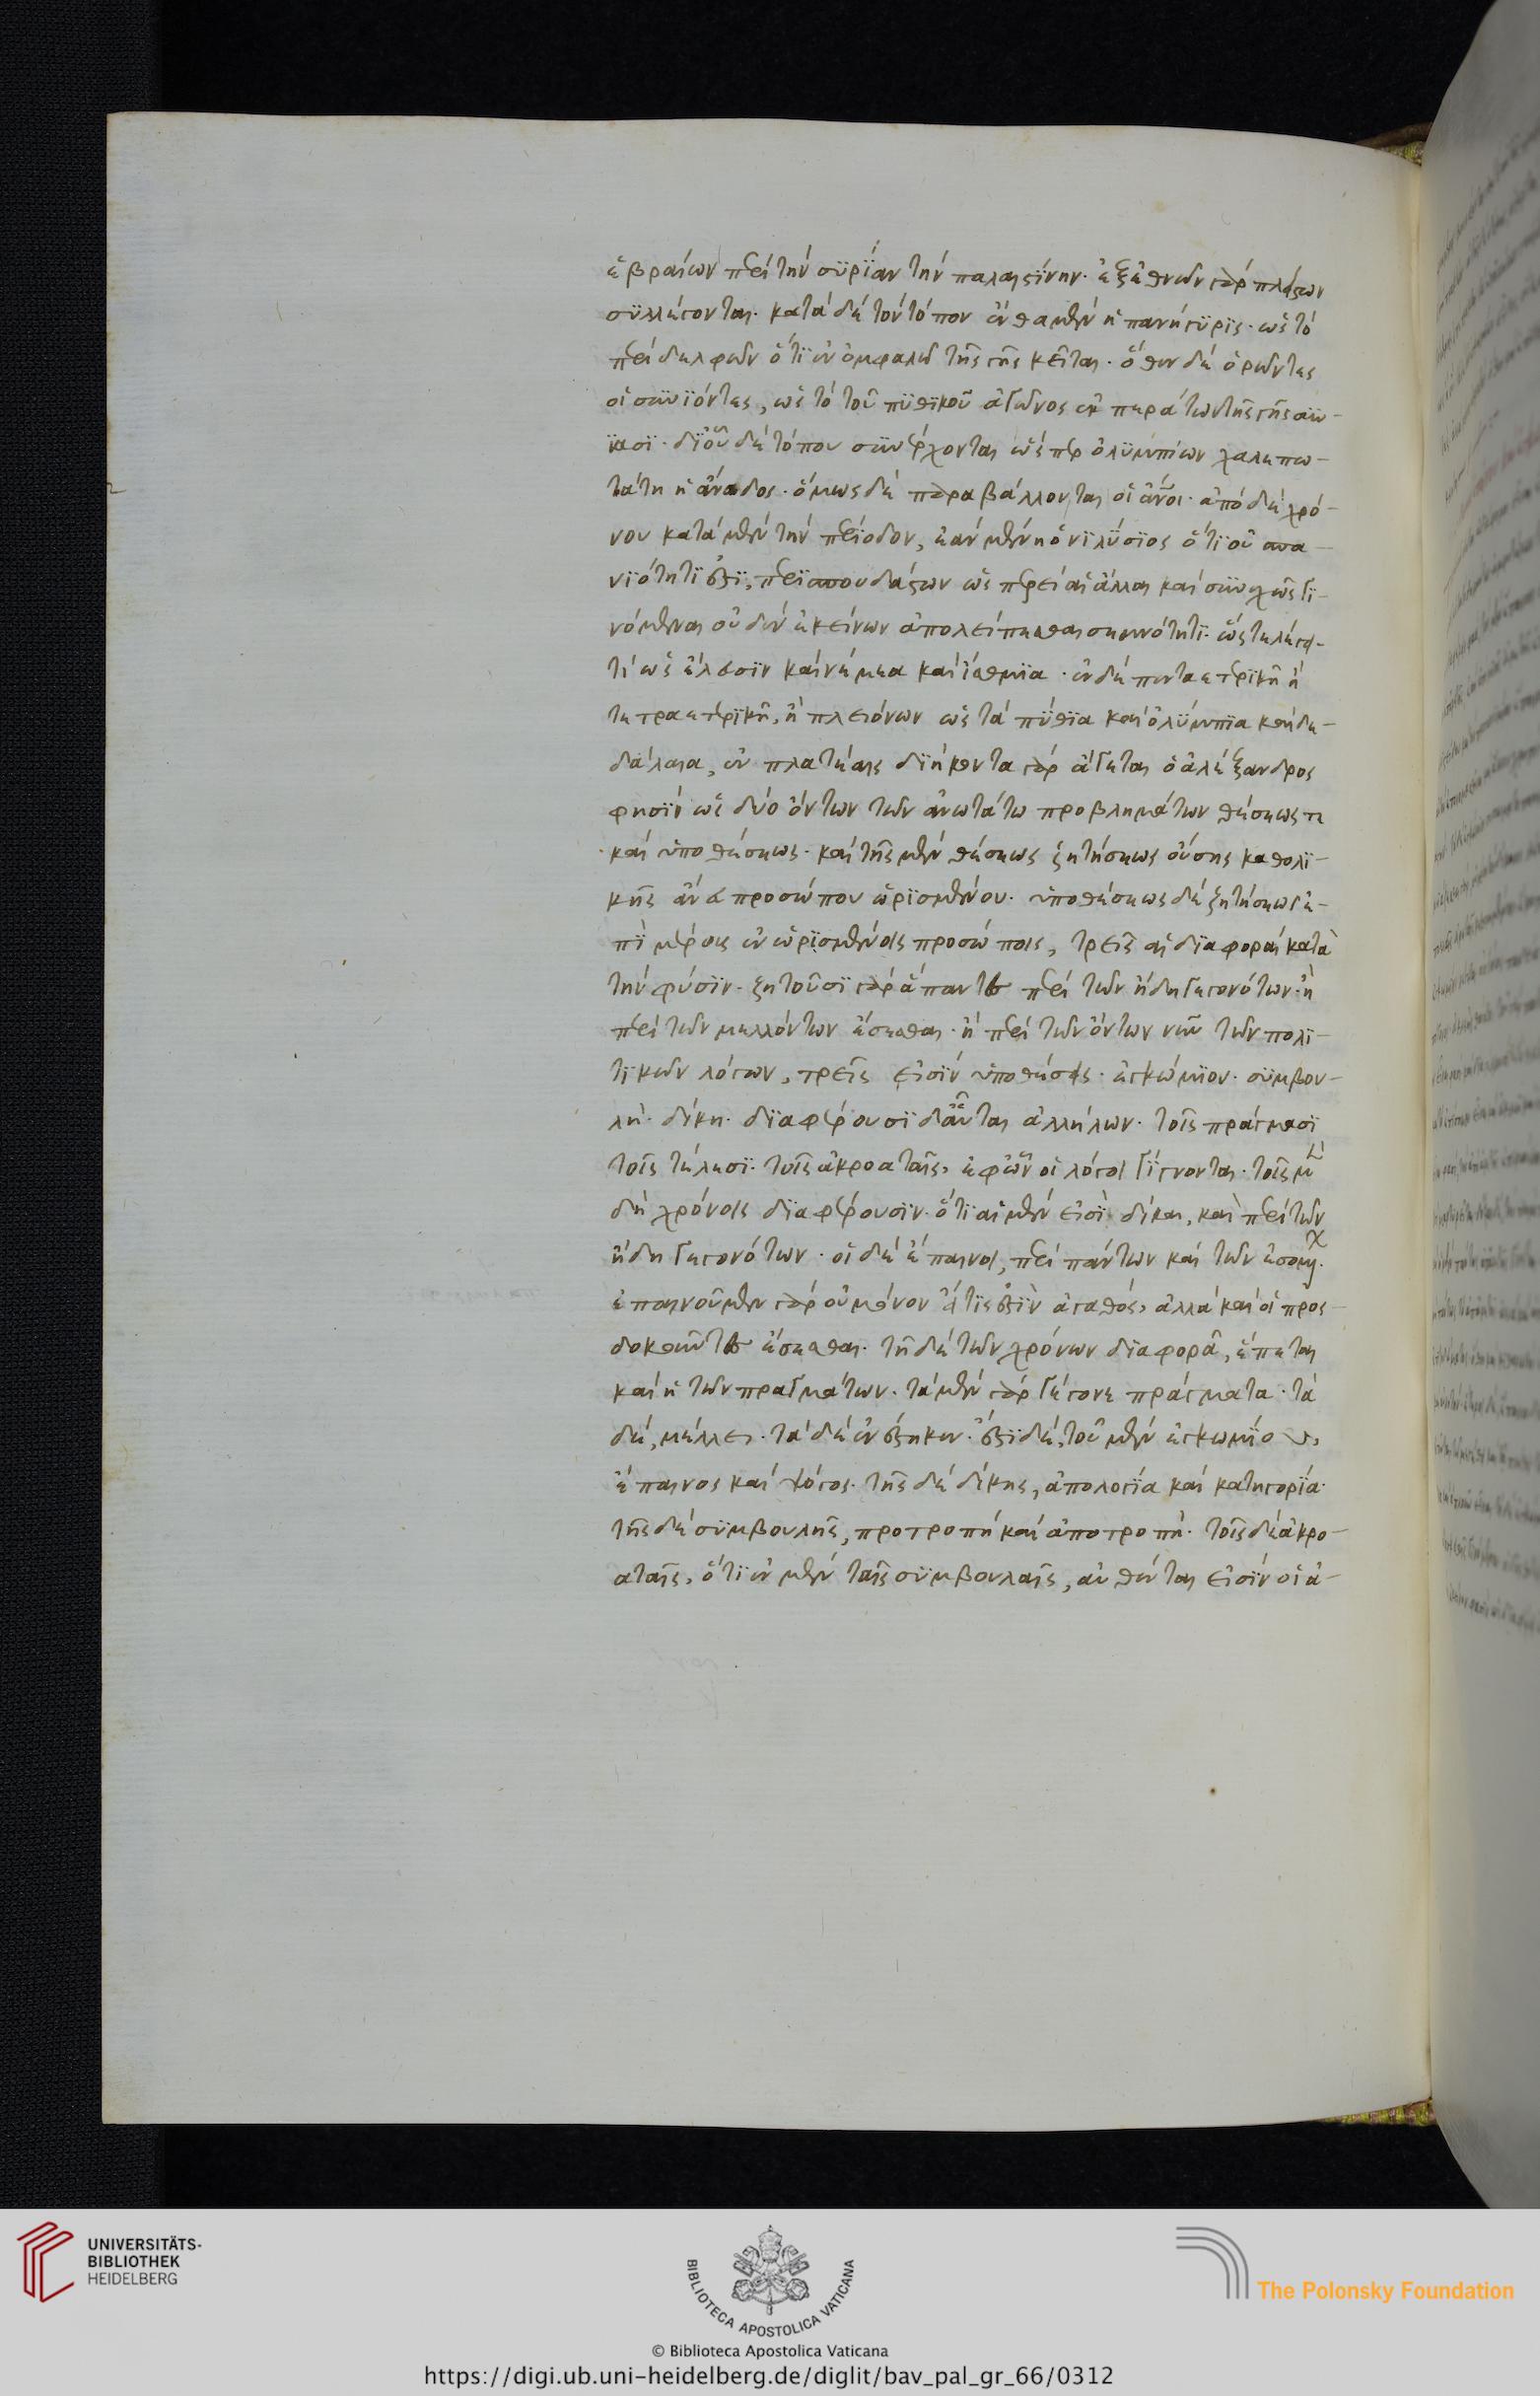 ἑβραίων περὶ τὴν συρίαν τὴν παλαιστίνην. ἐξ ἐθνῶν γὰρ πλείστων
συλλέγονται. κατὰ δὲ τὸν τόπον ἔνθα μὲν ἡ πανήγυρις. ὡς τὸ
περὶ δελφῶν ὅτι ἐν ὀμφαλῷ τῆς γῆς κεῖται. ὅθεν δὲ ὁρῶντες
οἱ συνιόντες, ὡς τὸ τοῦ πυθικοῦ ἀγῶνος ἐκ περάτων τῆς γῆς συν-
ίασι. δι' οὗ δὲ τόπου συνέρχονται ὥσπερ ὀλυμπίων χαλεπω-
τάτη ἡ ἄνοδος. ὅμως δὲ παραβάλλονται οἱ ἄνοι. ἀπὸ δὲ χρό-
νου κατὰ μὲν τὴν περίοδον, ἐὰν μὲν ᾖ ἐνιαύσιος ὅτι οὐ σπα-
νιότητί ἐστι, περισπουδάστων ὡς περ εἰ αἱ ἄλλαι καὶ συνεχῶς γι-
νόμεναι οὐδὲν ἐκείνων ἀπολείπεσθαι σεμνότητι.
τι ὡς ἐλευσὶν καὶ νέμεα καὶ ἴσθμια. ἐν δὲ πενταετρικῇ ἢ
τετραετρικῇ, ἢ πλειόνων ὡς τὰ πύθια καὶ ὀλύμπια καὶ δε-
δάλαια, ἐν πλαταιαῖς διήκοντα γὰρ ἄγεται ὁ ἀλέξανδρος
φησὶν ὡς δύο ὄντων τῶν ἀνωτάτω προβλημάτων θέσεώς τε
καὶ ὑποθέσεως. καὶ τῆς μὲν θέσεως ζητήσεως οὔσης καθολι-
κῆς ἄνευ προσώπου ὡρισμένου. ὑποθέσεως δὲ ζητήσεως ἐ-
πὶ μέρους ἐν ὡρισμένοις προσώποις, τρεῖς αἱ διαφοραὶ κατὰ
τὴν φύσιν. ζητοῦσι γὰρ ἅπαντες περὶ τῶν ἤδη γεγονότων. ἢ
περὶ τῶν μελλόντων ἔσεσθαι. ἢ περὶ τῶν ὄντων νῦν τῶν πολι-
τικῶν λόγων, τρεῖς εἰσὶν ὑποθέσεις. ἐγκώμιον. συμβου-
λή. δίκη. διαφέρουσι δ' αὗται ἀλλήλων. τοῖς πράγμασι
τοῖς τέλεσι. τοῖς ἀκροαταῖς, ἐφ' ὧν οἱ λόγοι γίγνονται. τοῖς μὲν
δὴ χρόνοις διαφέρουσιν. ὅτι αἱ μὲν εἰσὶ δίκαι, καὶ περὶ τῶν
ἤδη γεγονότων. οἱ δὲ ἔπαινοι, περὶ πάντων καὶ τῶν ἐσομ.
ἐπαινοῦμεν γὰρ οὐ μόνον εἴ τις ἐστὶν ἀγαθός, ἀλλὰ καὶ οἱ προς-
δοκοῦντες ἔσεσθαι. τῇ δὲ τῶν χρόνων διαφορᾷ, ἕπεται
καὶ ἡ τῶν πραγμάτων. τὰ μὲν γὰρ γέγονε πράγματα. τὰ
δὲ, μέλλει. τὰ δὲ ἐνέστηκεν. ἔστι δὲ, τοῦ μὲν ἐγκωμίου,
ἔπαινος καὶ ψόγος. τῆς δὲ δίκης, ἀπολογία καὶ κατηγορία.
τῆς δὲ συμβουλῆς, προτροπὴ καὶ ἀποτροπή. τοῖς δὲ ἀκρο-
αταῖς, ὅτι ἐν μὲν ταῖς συμβουλαῖς, αὐθένται εἰσὶν οἱ ἀ-
UNIVERSITÄTS-
BIBLIOTHEK
HEIDELBERG
BIBLIOTECA APOSTOLICA VATICANA
The Polonsky Foundation
© Biblioteca Apostolica Vaticana
https://digi.ub.uni-heidelberg.de/diglit/bav_pal_gr_66/0312